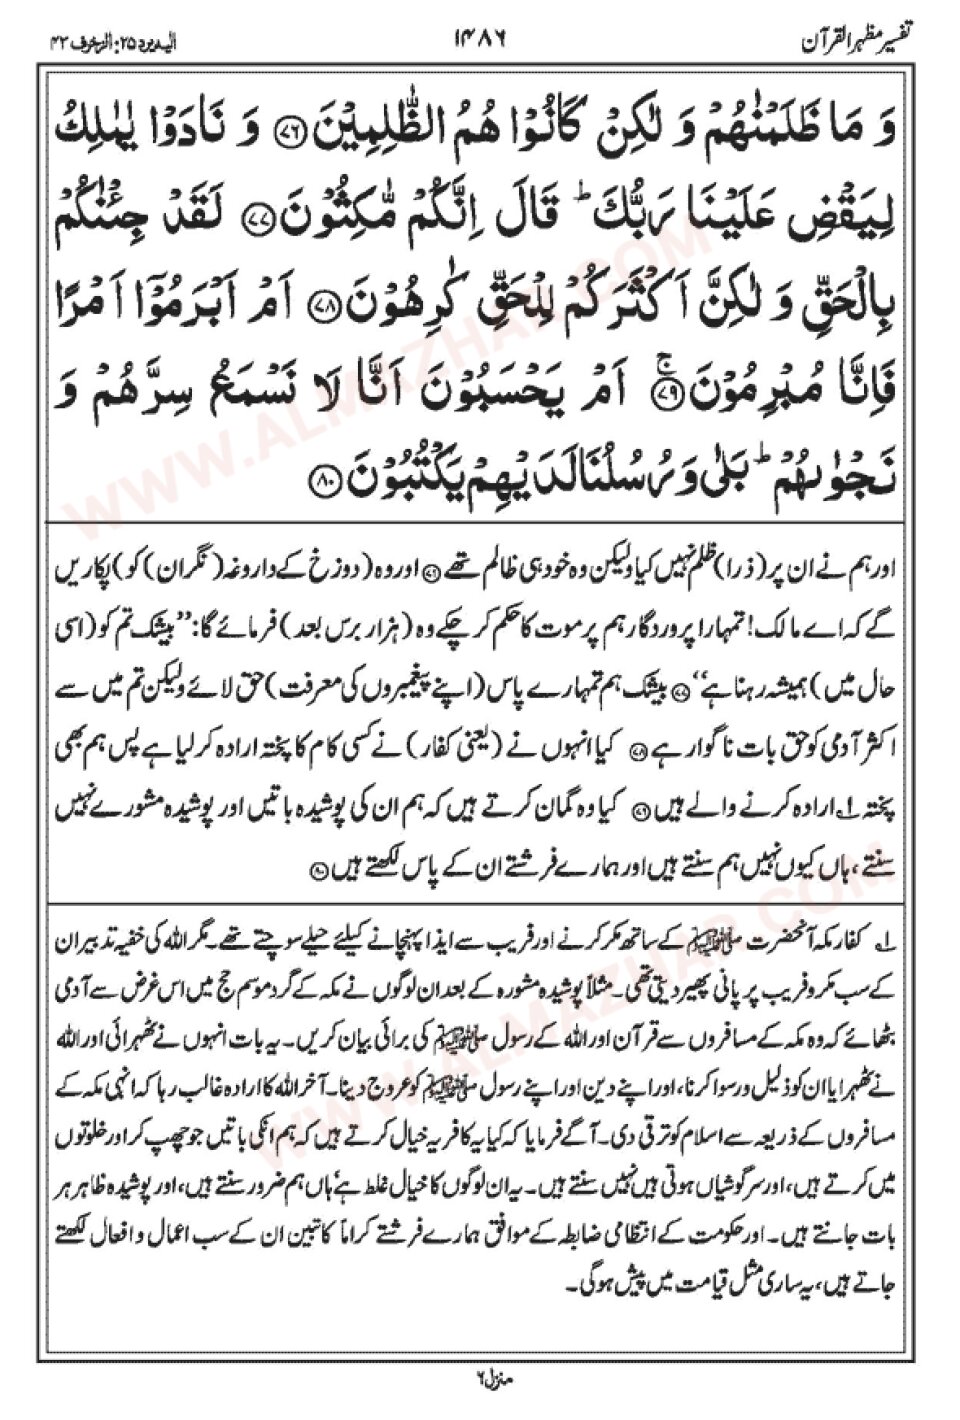 تفسیر مظہر القرآن
۱۴۸۶
الیہ یرد ۲۵: الزخرف ۴۳
وَ مَا ظَلَمْنٰهُمْ وَ لٰكِنْ كَانُوْا هُمُ الظّٰلِمِيْنَ ﴿۷۶﴾ وَ نَادَوْا يٰمٰلِكُ
لِيَقْضِ عَلَيْنَا رَبُّكَ ؕ قَالَ اِنَّكُمْ مّٰكِثُوْنَ ﴿۷۷﴾ لَقَدْ جِئْنٰكُمْ
بِالْحَقِّ وَ لٰكِنَّ اَكْثَرَكُمْ لِلْحَقِّ كٰرِهُوْنَ ﴿۷۸﴾ اَمْ اَبْرَمُوْۤا اَمْرًا
فَاِنَّا مُبْرِمُوْنَ ﴿۷۹﴾ۚ اَمْ يَحْسَبُوْنَ اَنَّا لَا نَسْمَعُ سِرَّهُمْ وَ
نَجْوٰىهُمْ ؕ بَلٰى وَ رُسُلُنَا لَدَيْهِمْ يَكْتُبُوْنَ ﴿۸۰﴾
اور ہم نے ان پر (ذرا) ظلم نہیں کیا ولیکن وہ خود ہی ظالم تھے ﴿۷۶﴾ اور وہ (دوزخ کے داروغہ (نگران) کو) پکاریں
گے کہ اے مالک! تمہارا پروردگار ہم پر موت کا حکم کر چکے وہ (ہزار برس بعد) فرمائے گا: ’’بیشک تم کو (اسی
حال میں) ہمیشہ رہنا ہے‘‘ ﴿۷۷﴾ بیشک ہم تمہارے پاس (اپنے پیغمبروں کی معرفت) حق لائے ولیکن تم میں سے
اکثر آدمی کو حق بات ناگوار ہے ﴿۷۸﴾ کیا انہوں نے (یعنی کفار) نے کسی کام کا پختہ ارادہ کر لیا ہے پس ہم بھی
پختہ ۱؎ ارادہ کرنے والے ہیں ﴿۷۹﴾ کیا وہ گمان کرتے ہیں کہ ہم ان کی پوشیدہ باتیں اور پوشیدہ مشورے نہیں
سنتے، ہاں کیوں نہیں ہم سنتے ہیں اور ہمارے فرشتے ان کے پاس لکھتے ہیں ﴿۸۰﴾
۱؎ کفار مکہ آنحضرت ﷺ کے ساتھ مکر کرنے اور فریب سے ایذا پہنچانے کیلئے حیلے سوچتے تھے۔ مگر اللہ کی خفیہ تدبیر ان
کے سب مکر و فریب پر پانی پھیر دیتی تھی۔ مثلاً پوشیدہ مشورہ کے بعد ان لوگوں نے مکہ کے گرد موسم حج میں اس غرض سے آدمی
بٹھائے کہ وہ مکہ کے مسافروں سے قرآن اور اللہ کے رسول ﷺ کی برائی بیان کریں۔ یہ بات انہوں نے ٹھہرائی اور اللہ
نے ٹھہرایا ان کو ذلیل و رسوا کرنا، اور اپنے دین اور اپنے رسول ﷺ کو عروج دینا۔ آخر اللہ کا ارادہ غالب رہا کہ انہی مکہ کے
مسافروں کے ذریعہ سے اسلام کو ترقی دی۔ آگے فرمایا کہ کیا یہ کافر یہ خیال کرتے ہیں کہ ہم انکی باتیں جو چھپ کر اور خلوتوں
میں کرتے ہیں، اور سرگوشیاں ہوتی ہیں نہیں سنتے ہیں۔ یہ ان لوگوں کا خیال غلط ہے ہاں ہم ضرور سنتے ہیں، اور پوشیدہ ظاہر ہر
بات جانتے ہیں۔ اور حکومت کے انتظامی ضابطہ کے موافق ہمارے فرشتے کراماً کاتبین ان کے سب اعمال و افعال لکھتے
جاتے ہیں، یہ ساری مثل قیامت میں پیش ہوگی۔
منزل ۶
WWW.ALMAZHAR.COM
WWW.ALMAZHAR.COM